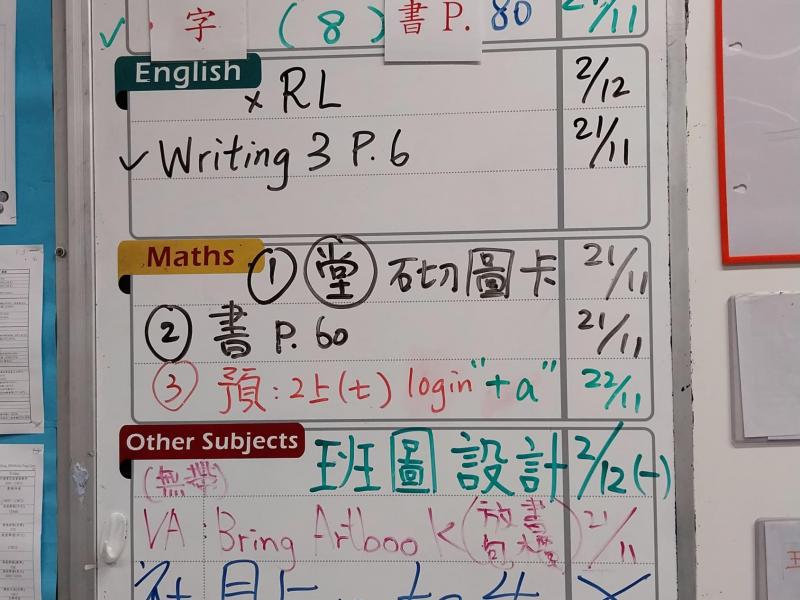 字 (8) 書 P. 80 21/11
English
RL 2/12
Writing 3 P. 6 21/11
Maths
① 堂 砌圖卡 21/11
② 書 P. 60 21/11
③ 預: 2上(七) login "+a" 22/11
Other Subjects
班圖設計 2/12(一)
(無業)
VA: Bring Artbook (放書包大  ) 21/11